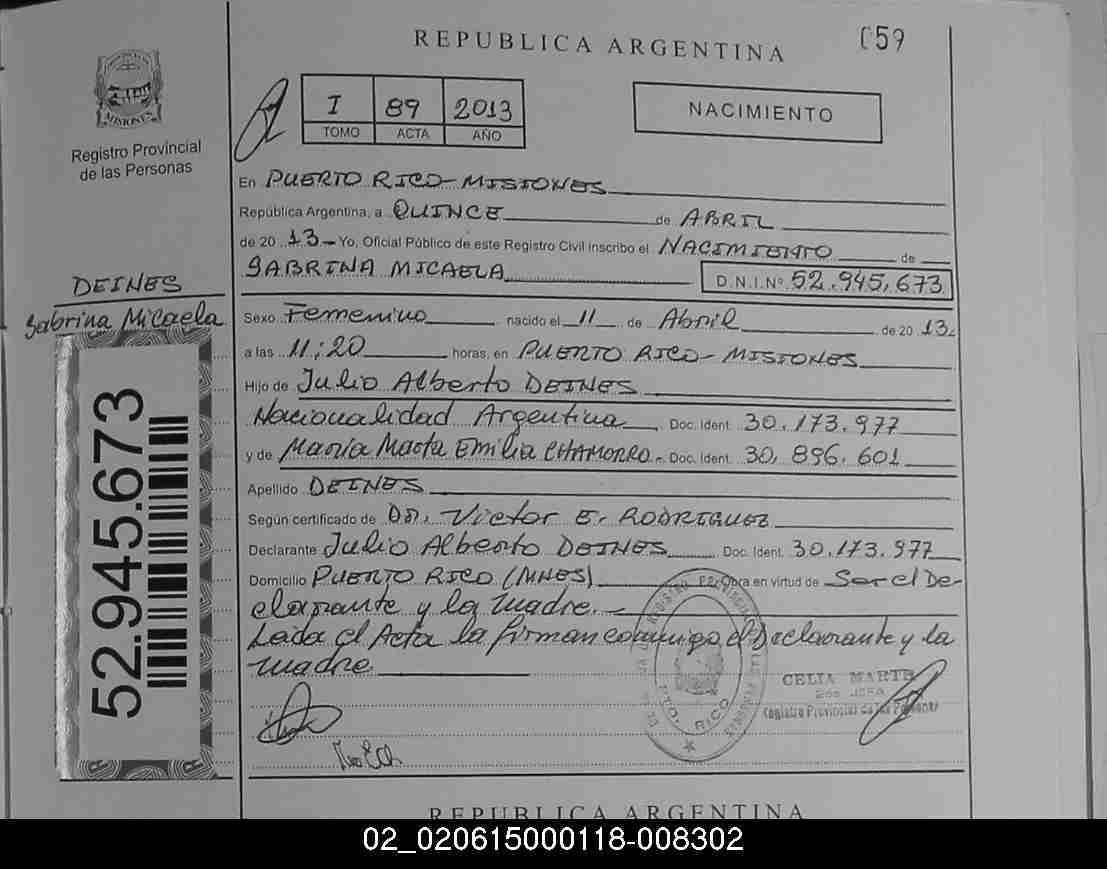 REPUBLICA ARGENTINA
059
MISIONES
Registro Provincial
de las Personas
I 89 2013
TOMO ACTA AÑO
NACIMIENTO
En PUERTO RICO - MISIONES
República Argentina, a QUINCE de ABRIL
de 20 13 - Yo, Oficial Público de este Registro Civil inscribo el NACIMIENTO de
SABRINA MICAELA D.N.I.Nº 52.945.673
DEINES
Sabrina Micaela
Sexo Femenino nacido el 11 de Abril de 20 13.
a las 11:20 horas, en PUERTO RICO - MISIONES
Hijo de Julio Alberto DEINES
Nacionalidad Argentina Doc. Ident. 30.173.977
y de María Marta Emilia CHAMORRO - Doc. Ident. 30.896.601
Apellido DEINES
Según certificado de DR. Victor E. RODRIGUEZ
Declarante Julio Alberto DEINES Doc. Ident. 30.173.977
Domicilio PUERTO RICO (MNES) Obra en virtud de Ser el De-
clarante y la madre.
Leída el Acta la firman conmigo el Declarante y la
madre
52.945.673
PTO. RICO
CELIA MARTE
JEFA
Registro Provincial de las Personas
REPUBLICA ARGENTINA
02_020615000118-008302